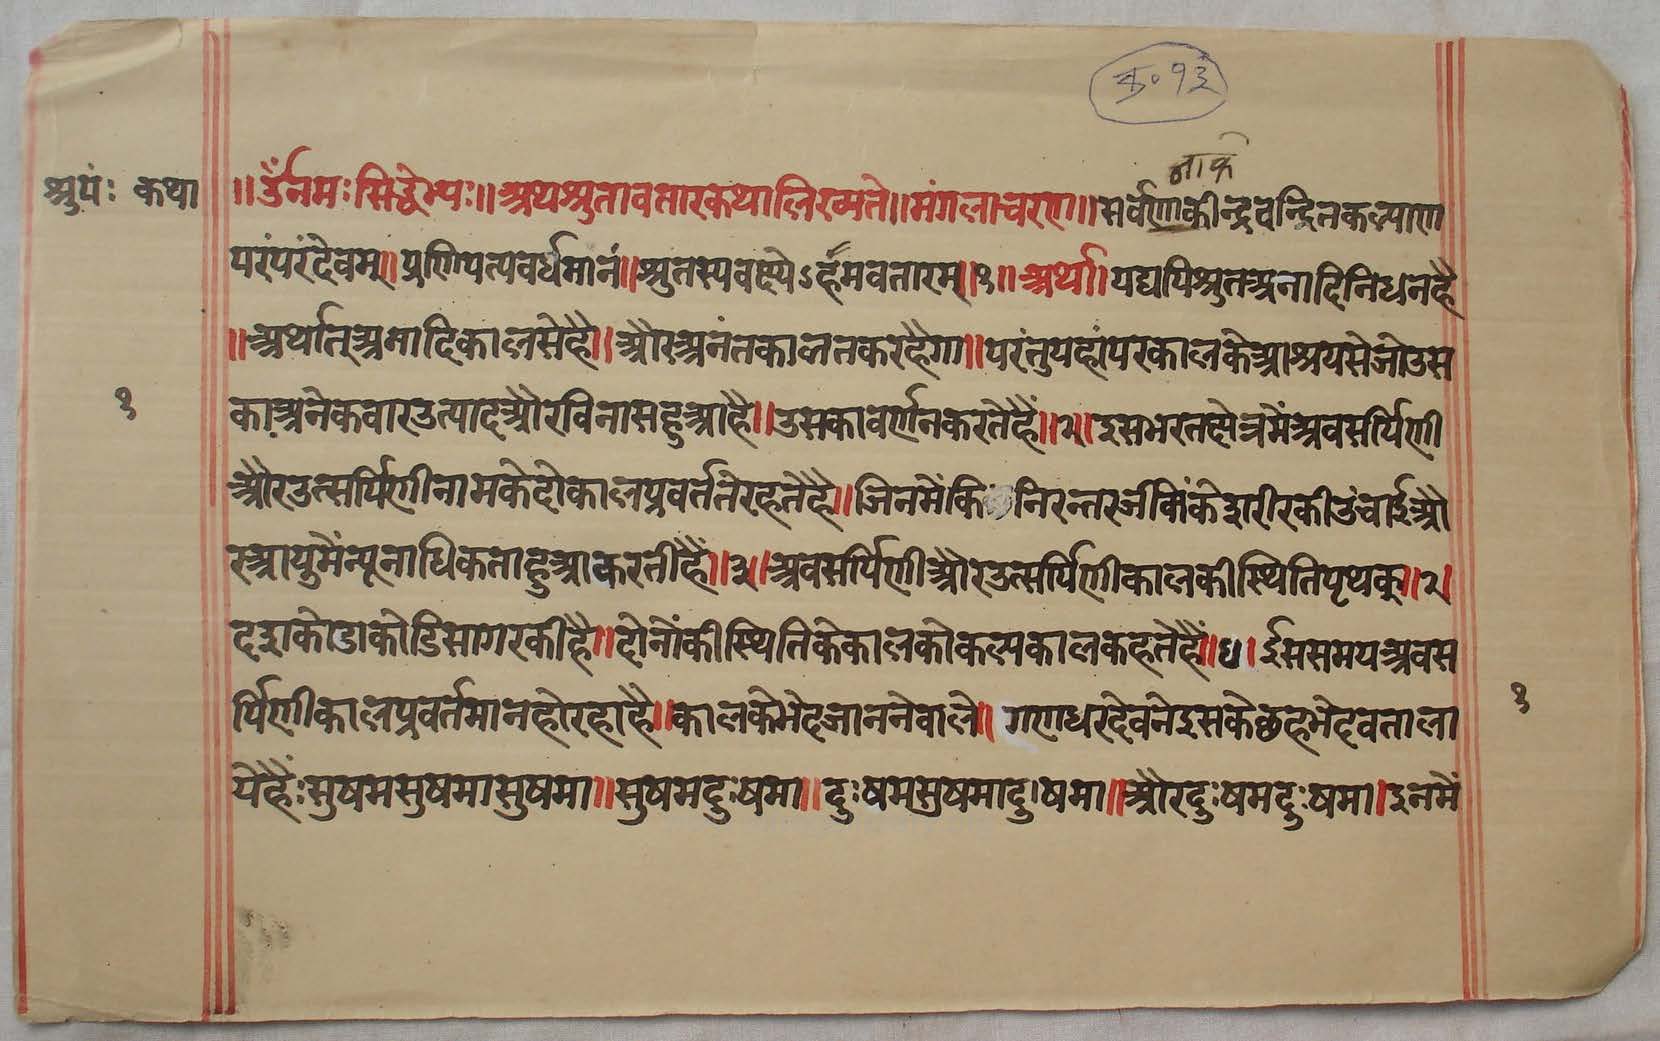 क्र० १३
नाकी
श्रुपं: कथा
॥ॐनमःसिद्धेभ्यः॥अथश्रुतावतारकथालिख्यते॥मंगलाचरण॥सर्वणाकीन्द्रवन्दितकल्याण
परंपरंदेवम्॥प्रणिपत्यवर्धमानं॥श्रुतस्यवक्ष्येऽहंमवतारम्॥१॥अर्थ॥यद्यपिश्रुतअनादिनिधनहै
॥अर्थात्अमादिकालसेहै॥औरअनंतकालतकरहैगा॥परंतुयहांपरकालकेआश्रयसेजोउस
काअनेकवारउत्पादऔरविनासहुआहै॥उसकावर्णनकरतेहैं॥२॥इसभरतक्षेत्रमेंअवसर्प्पिणी
१
औरउत्सर्प्पिणीनामकेदोकालप्रवर्ततेरहतेहै॥जिनमेंकि निरन्तरजीकिंकेशरीरकीउंचाईऔ
रआयुमेंन्यूनाधिकताहुआकरतीहैं॥३॥अवसर्प्पिणीऔरउत्सर्प्पिणीकालकीस्थितिपृथक्॥२।
दशकोडाकोडिसागरकीहै॥दोनोंकीस्थितिकेकालकोकल्पकालकहतेहैं॥४।ईससमयअवस
र्प्पिणीकालप्रवर्तमानहोरहाहै॥कालकेभेदजाननेवाले॥गणधरदेवनेइसकेछहभेदवताला
१
येहैं:सुषमसुषमासुषमा॥सुषमदुःषमा॥दुःषमसुषमादु।षमा॥औरदुःषमदुःषमा।इनमें